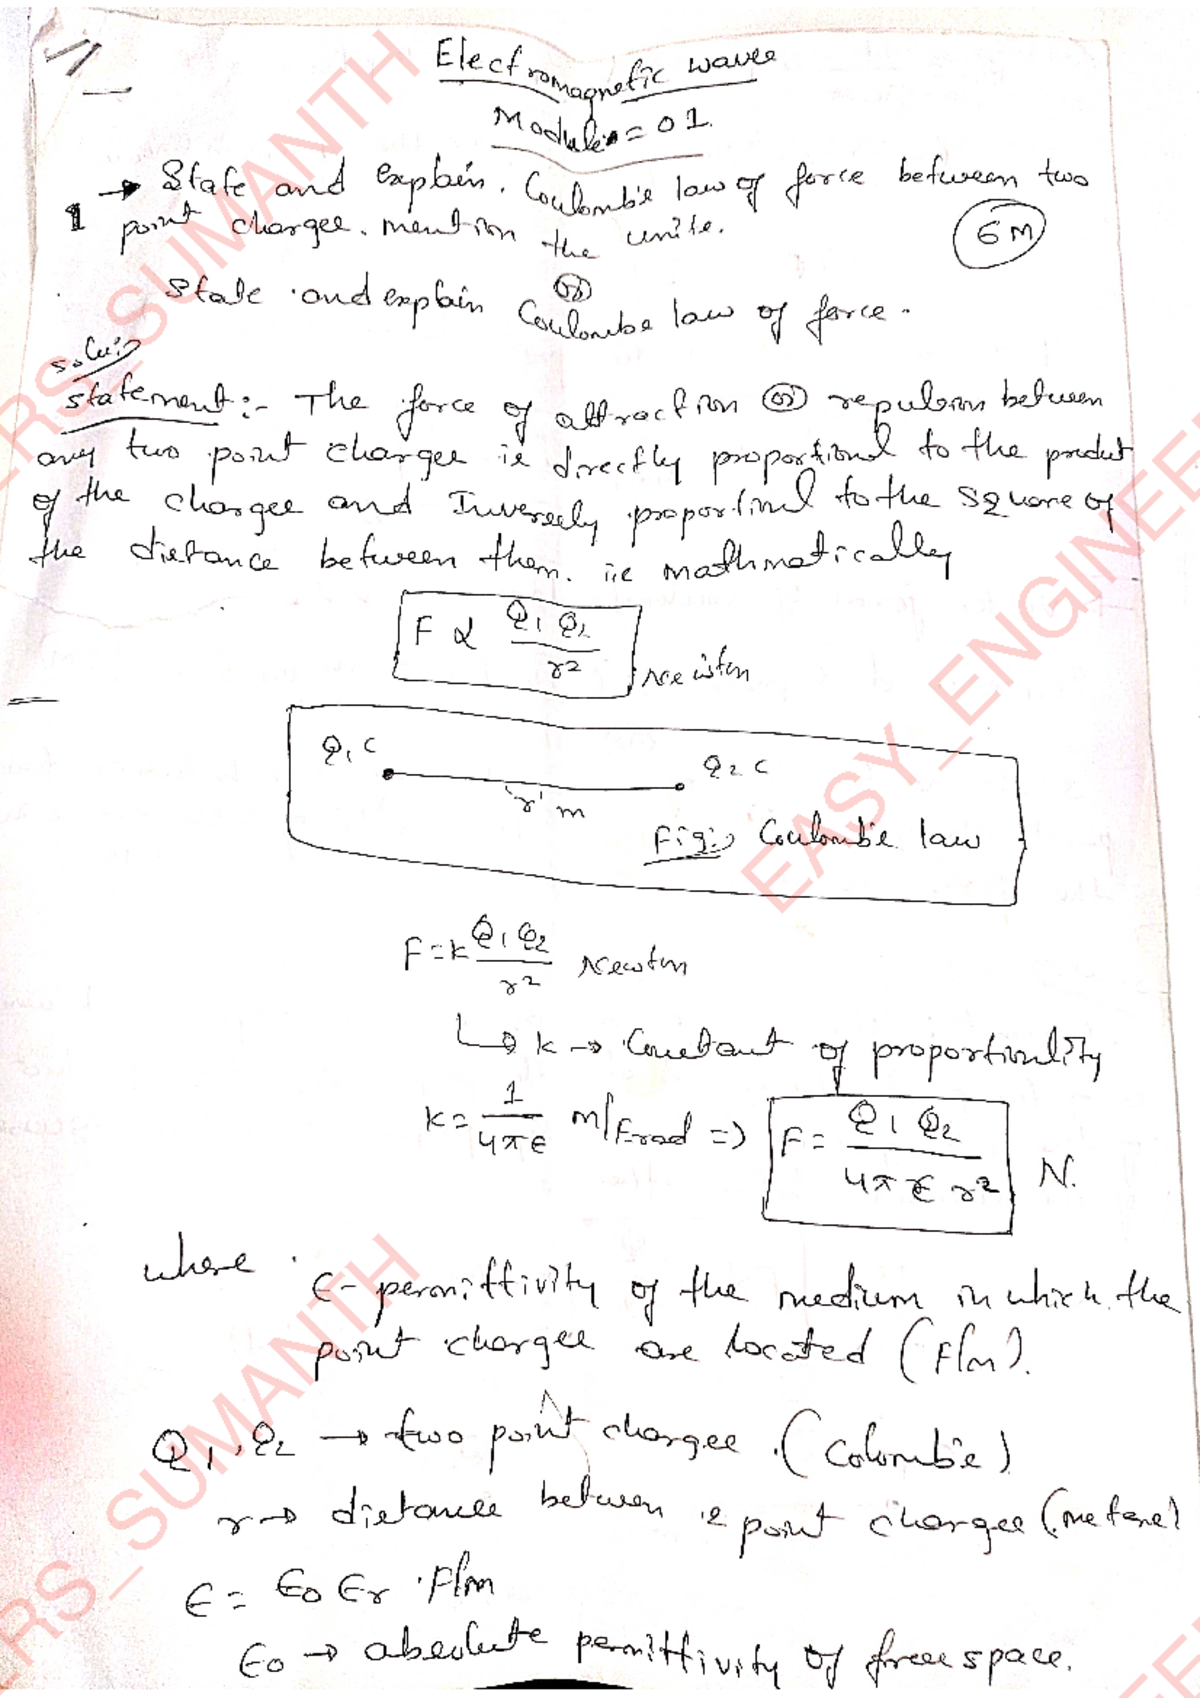 Electromagnetic waves
Module = 01.
1 → State and explain. Coulomb's law of force between two
point charges. mention the units.
6M
(or)
State and explain Coulombs law of force.
Solu:
Statement:- The force of attraction (or) repulsion between
any two point charges is directly proportional to the product
of the charges and Inversely proportinal to the square of
the distance between them. i.e mathmatically
F ∝ Q1 Q2 / r² Newton
Q1 C
Q2 C
'r' m
Fig:) Coulomb's law
F = k Q1 Q2 / r² Newton
↳ k → Constant of proportionlity
k = 1 / 4πϵ m/Frad => F = Q1 Q2 / 4πϵ r² N.
where
ϵ- permittivity of the medium in which the
point charges are located (F/m).
Q1, Q2 → two point charges. (Colomb's)
r → distance between 2 point charges (meters)
ϵ = ϵ0 ϵr F/m
ϵ0 → absolute permittivity of free space.
EASY_ENGINEERS_SUMANTH